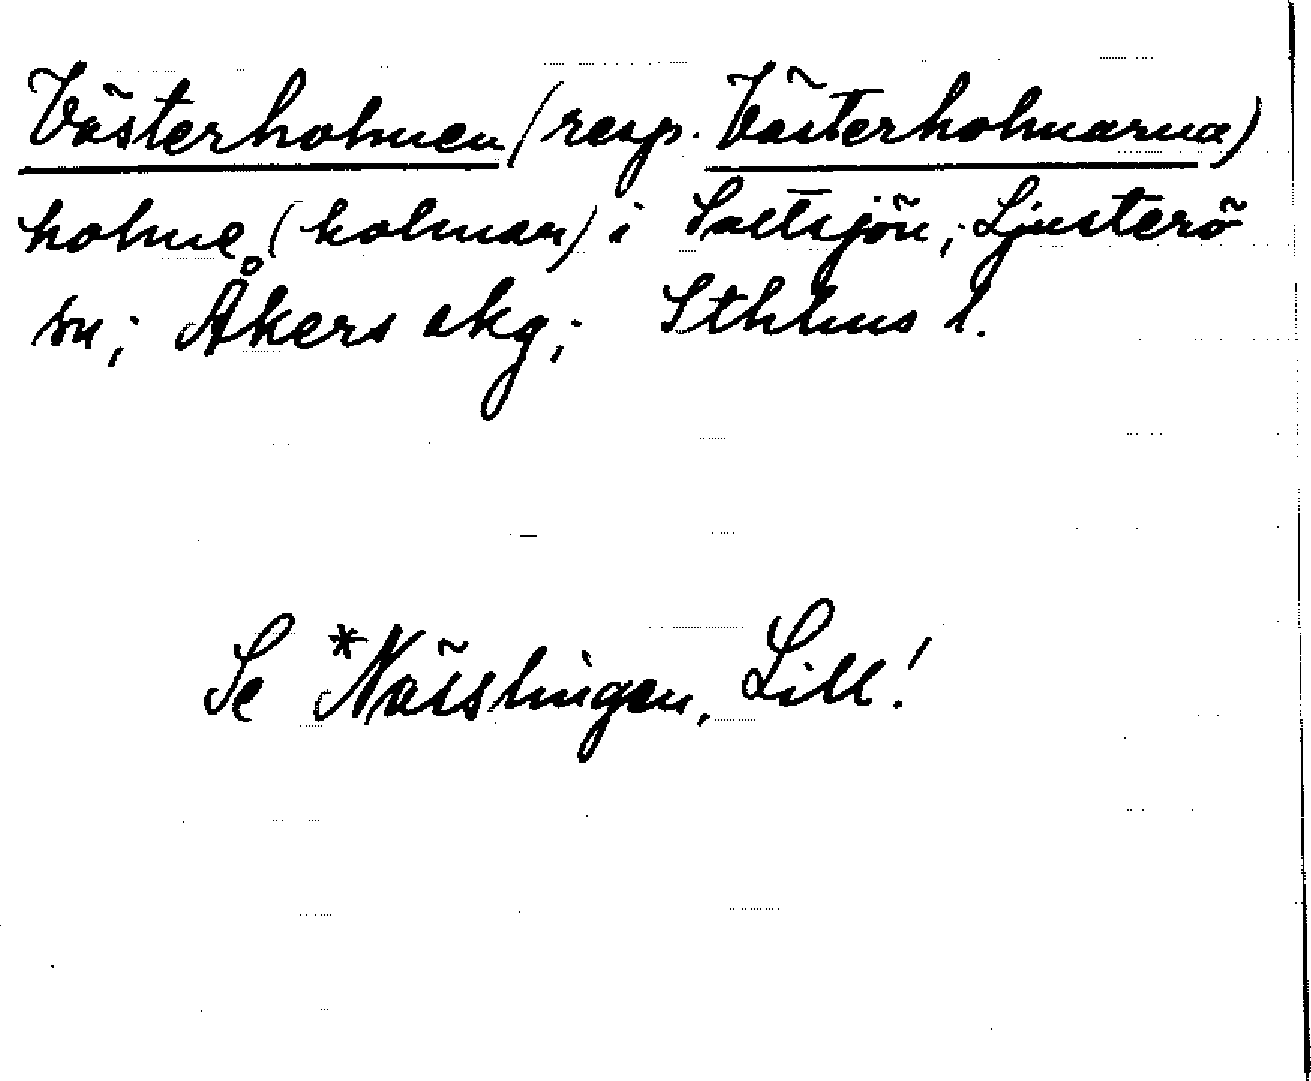 Västerholmen (resp. Västerholmarna)
holme (holmar) i Saltsjön; Ljusterö
sn; Åkers skg; Sthlms l.
Se *Nässlingen, Lill!